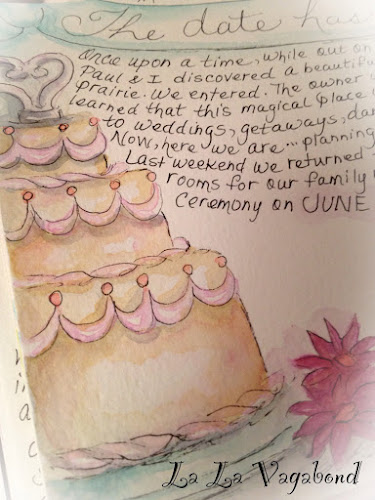 The date has
Once upon a time, while out on
Paul & I discovered a beautiful
Prairie. We entered. The owner
learned that this magical place
to weddings, getaways, dan
Now, here we are... planning
Last weekend we returned
rooms for our family
Ceremony on JUNE
La La Vagabond